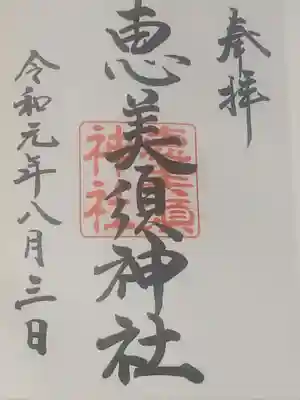 奉拝
恵美須神社
恵美須
神社
令和元年八月三日